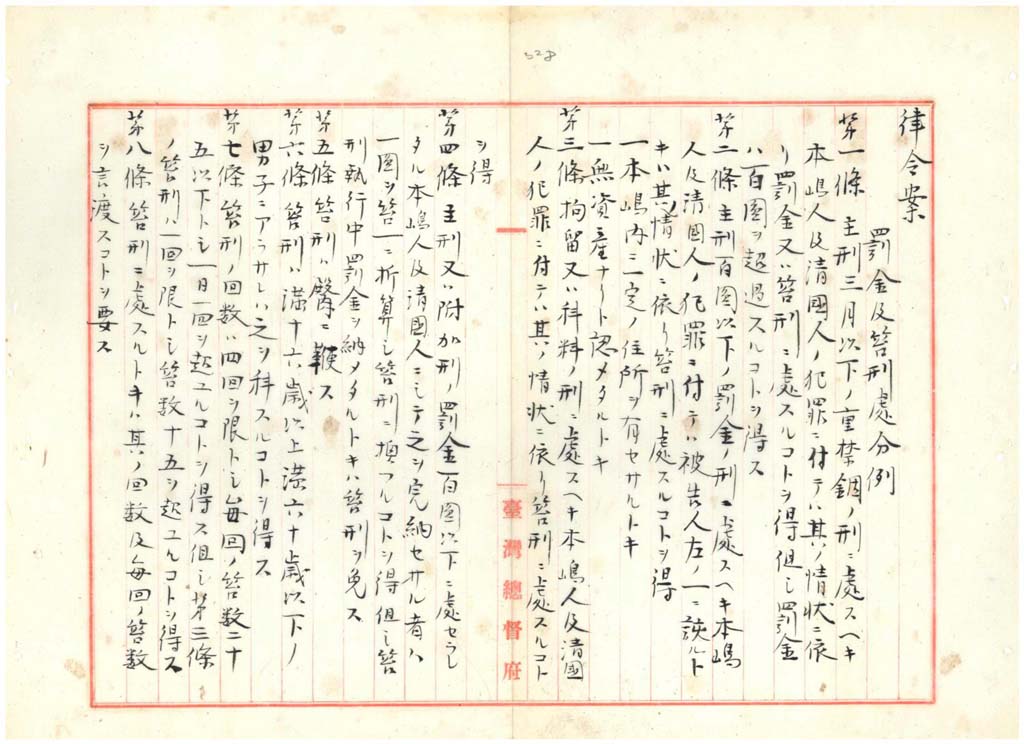 528
律令案
罰金及笞刑處分例
第一條 主刑三月以下ノ重禁錮ノ刑ニ處スヘキ
本嶋人及清國人ノ犯罪ニ付テハ其ノ情状ニ依
リ罰金又ハ笞刑ニ處スルコトヲ得但シ罰金
ハ百圓ヲ超過スルコトヲ得ス
第二條 主刑百圓以下ノ罰金ノ刑ニ處スヘキ本嶋
人及清國人ノ犯罪ニ付テハ被告人左ノ一ニ該ルト
キハ其情状ニ依リ笞刑ニ處スルコトヲ得
一本嶋内ニ一定ノ住所ヲ有セサルトキ
一無資産ナリト認メタルトキ
第三條拘留又ハ科料ノ刑ニ處スヘキ本嶋人及清國
人ノ犯罪ニ付テハ其ノ情状ニ依リ笞刑ニ處スルコト
ヲ得
第四條 主刑又ハ附加刑ノ罰金百圓以下ニ處セラレ
タル本嶋人及清國人ニシテ之ヲ完納セサル者ハ
一圓ヲ笞一ニ折算シ笞刑ニ換フルコトヲ得但シ笞
刑執行中罰金ヲ納メタルトキハ笞刑ヲ免ス
第五條笞刑ハ臀ニ鞭ス
第六條 笞刑ハ満十六歳以上満六十歳以下ノ
男子ニアラサレハ之ヲ科スルコトヲ得ス
第七條笞刑ノ回数ハ四回ヲ限トシ毎回ノ笞数二十
五以下トシ一日一回ヲ超ユルコトヲ得ス但シ第三條
ノ笞刑ハ一回ヲ限トシ笞数十五ヲ超ユルコトヲ得ス
第八條笞刑ニ處スルトキハ其ノ回数及毎回ノ笞数
ヲ言渡スコトヲ要ス
臺灣總督府